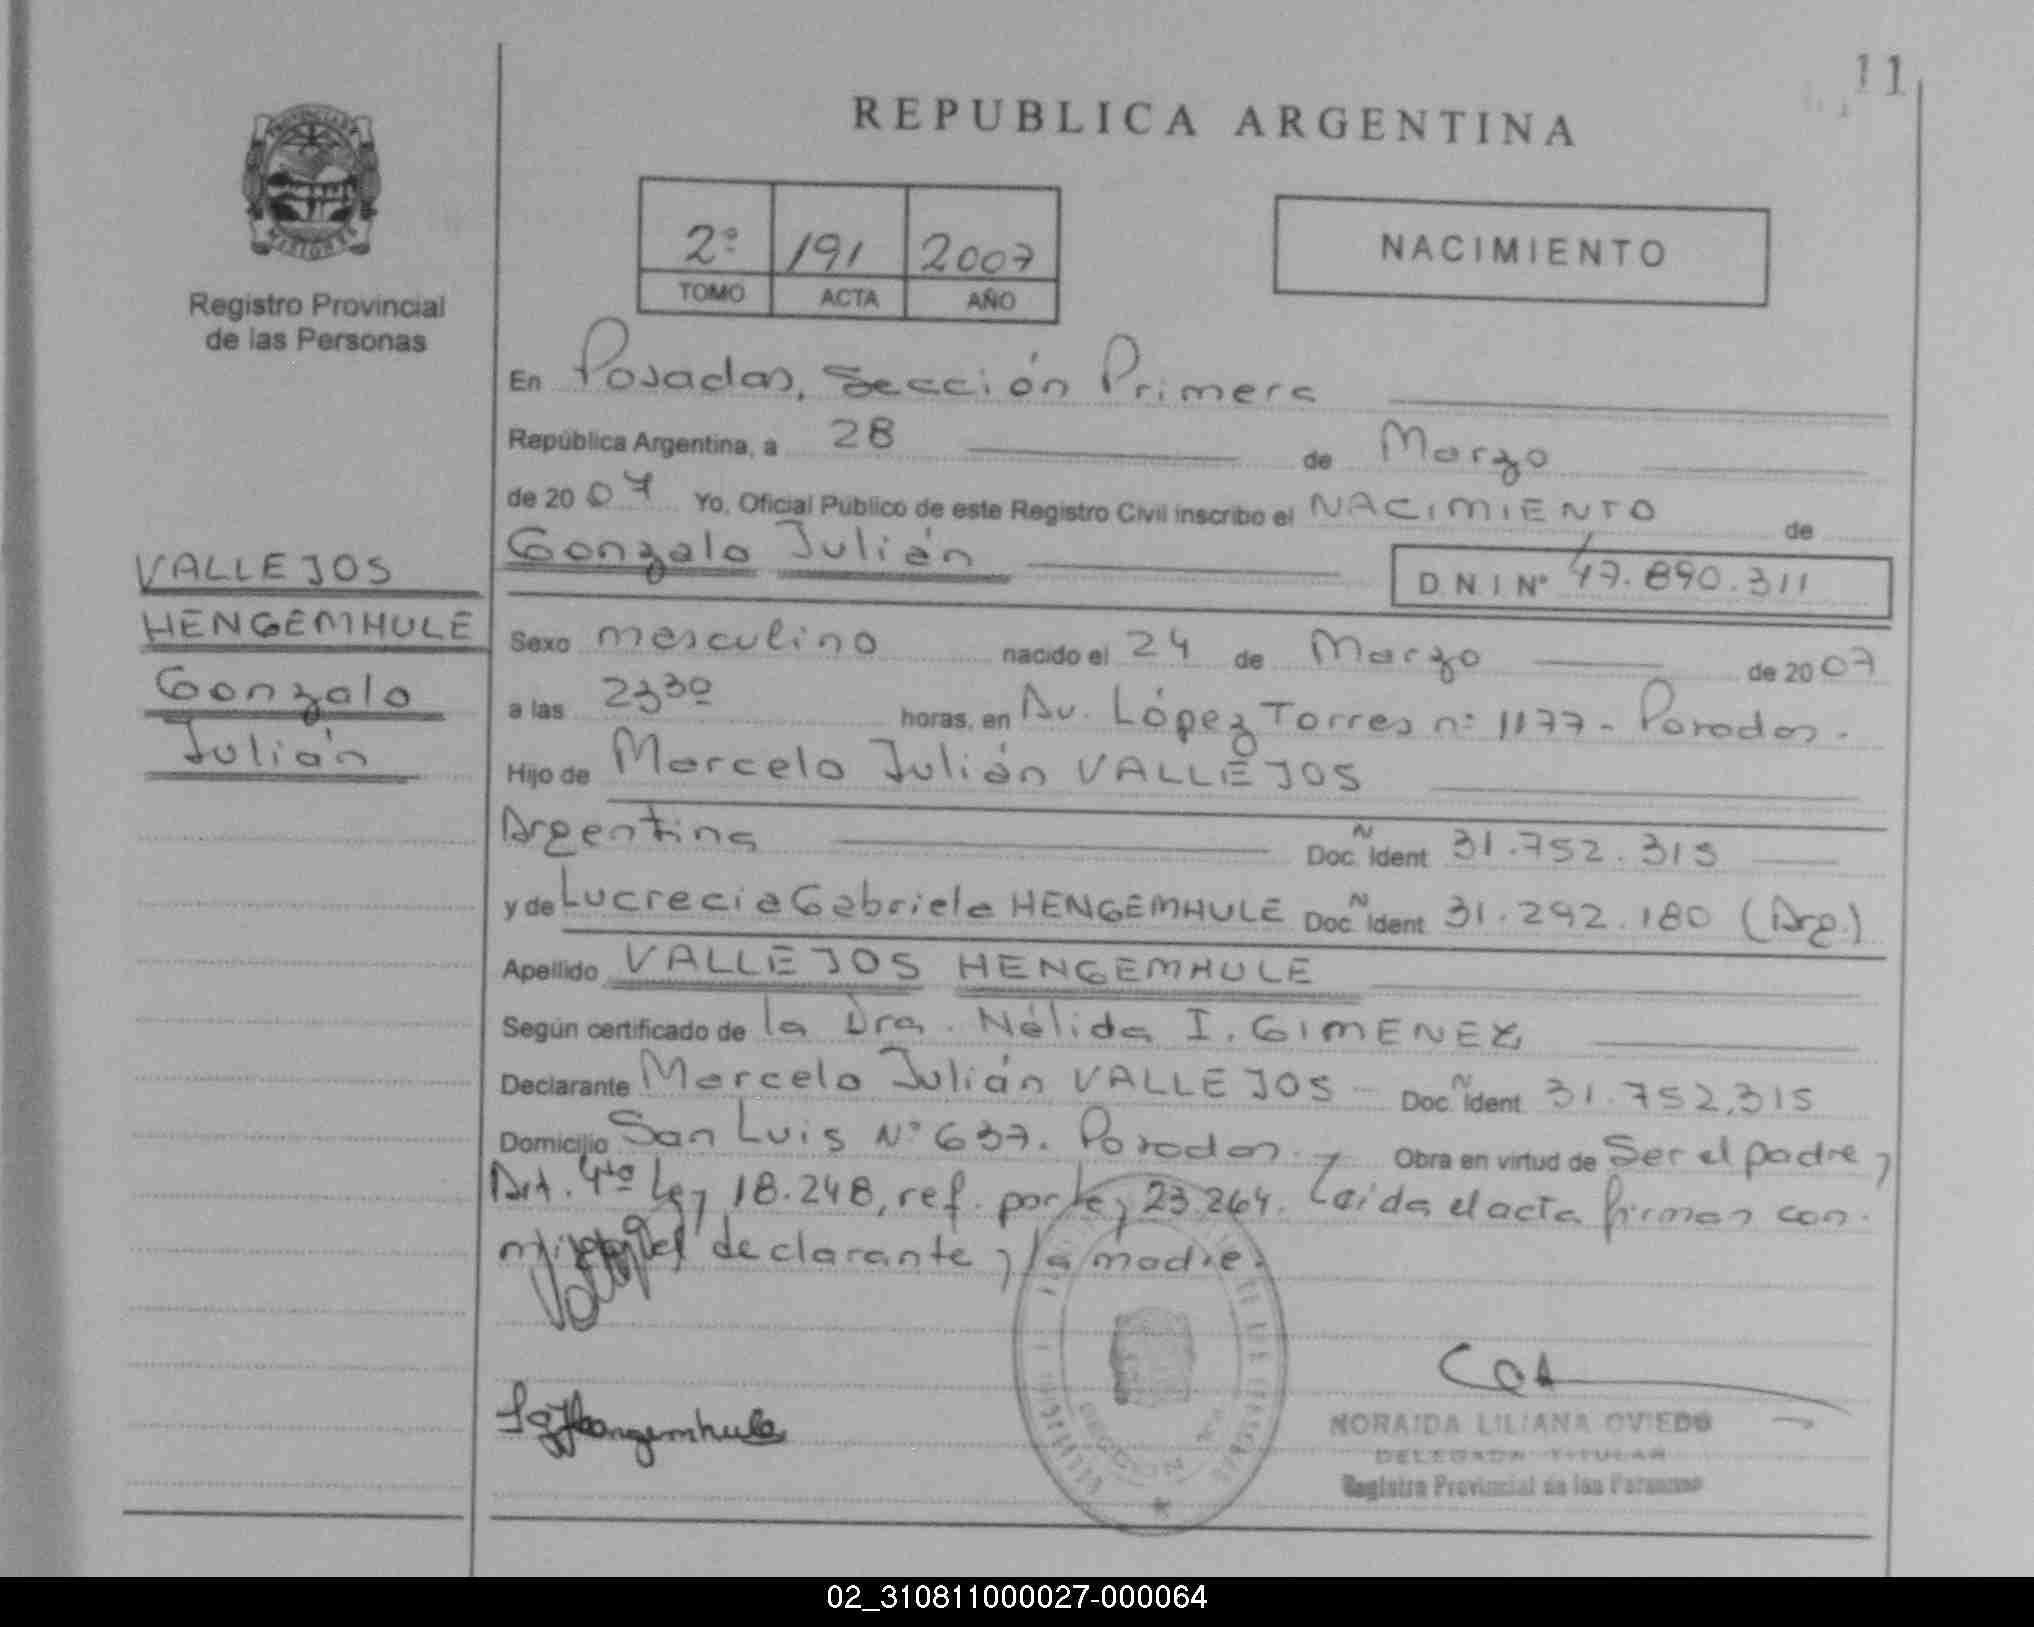 11
REPUBLICA ARGENTINA
PROVINCIA DE
MISIONES
Registro Provincial
de las Personas
2º 191 2007
TOMO ACTA AÑO
NACIMIENTO
En Posadas, Sección Primera
República Argentina, a 28 de Marzo
de 2007 Yo, Oficial Público de este Registro Civil inscribo el NACIMIENTO de
Gonzalo Julián D.N.I Nº 47.890.311
VALLEJOS
HENGEMHULE
Gonzalo
Julián
Sexo masculino nacido el 24 de Marzo de 2007
a las 23³⁰ horas, en Av. López Torres nº 1177 - Posadas.
Hijo de Marcelo Julián VALLEJOS
Argentina Doc. Ñ Ident 31.752.315
y de Lucrecia Gabriela HENGEMHULE Doc. Ñ Ident 31.292.180 (Arg.)
Apellido VALLEJOS HENGEMHULE
Según certificado de la Dra. Nélida I. GIMENEZ
Declarante Marcelo Julián VALLEJOS - Doc. Ñ Ident 31.752.315
Domicilio San Luis Nº 637. Posadas. Obra en virtud de Ser el padre y
Art. 4to Ley 18.248, ref. por ley 23.264. Leída el acta firman con-
migo el declarante y la madre.
Hengemhule
NORAIDA LILIANA OVIEDO
DELEGADA TITULAR
Registro Provincial de las Personas
02_310811000027-000064